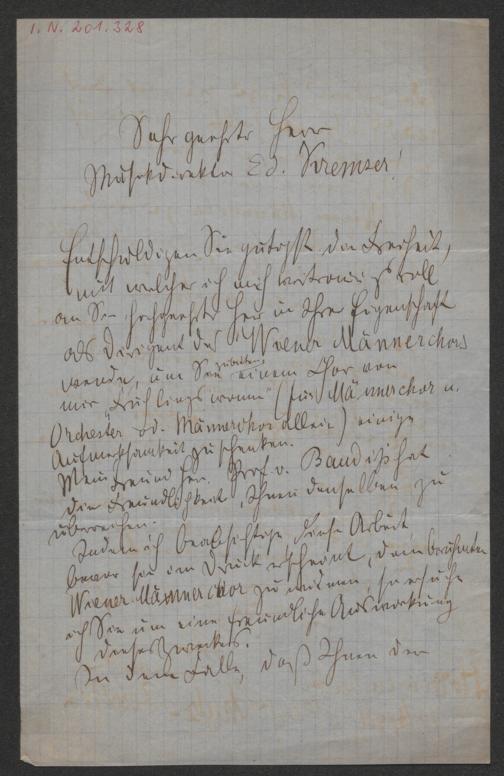 I. N. 201.328
Sehr geehrter Herr
Musikdirektor Ed. Kremser!
Entschuldigen Sie gütigst die Freiheit,
mit welcher ich mich vertrauensvoll
an Sie hochgeehrter Herr in Ihrer Eigenschaft
als Dirigent des Wiener Männerchors
wende, um Sie zu bitten einem Chor von
mir "Frühlingswonne" (für Männerchor u.
Orchester od. Männerchor allein) einige
Aufmerksamkeit zu schenken.
Mein Freund Herr Prof. v. Baudiß hat
die Freundlichkeit, Ihnen denselben zu
überreichen.
Indem ich beabsichtige, diese Arbeit
bevor sie im Druck erscheint, dem berühmten
Wiener Männerchor zu widmen, so ersuche
ich Sie um eine freundliche Auswirkung
dieses Zweckes.
In dem Falle, daß Ihnen der